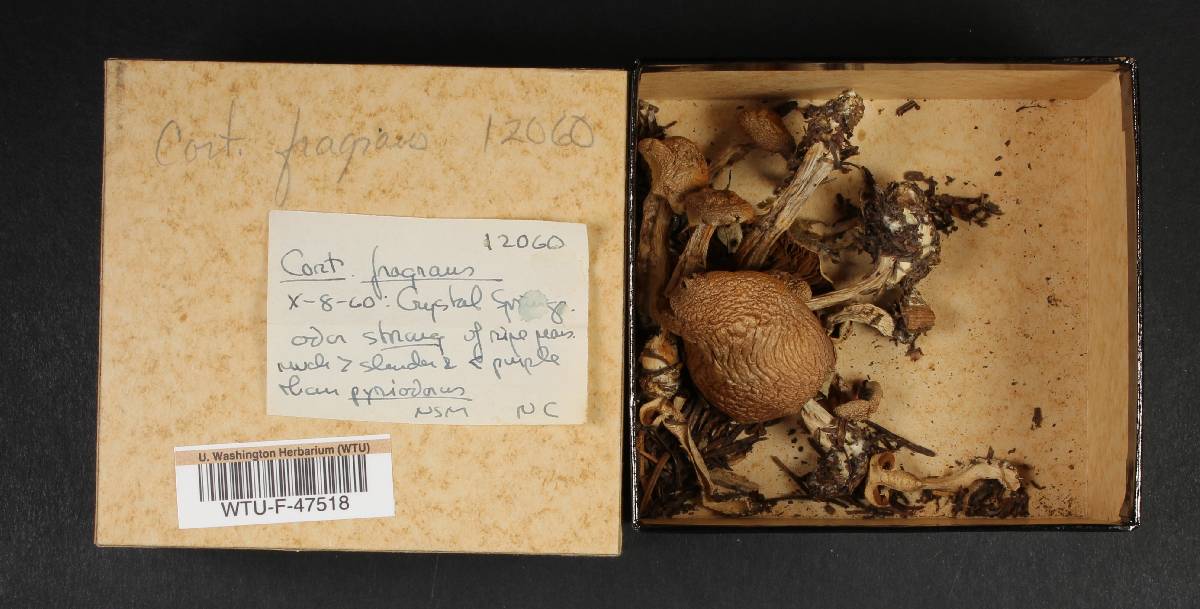 Cort. fragrans 12060
12060
Cort. fragrans
X-8-60. Crystal Springs.
odor strong of ripe pears.
much > slender & < purple
than pyriodorus
NSM NC
U. Washington Herbarium (WTU)
WTU-F-47518